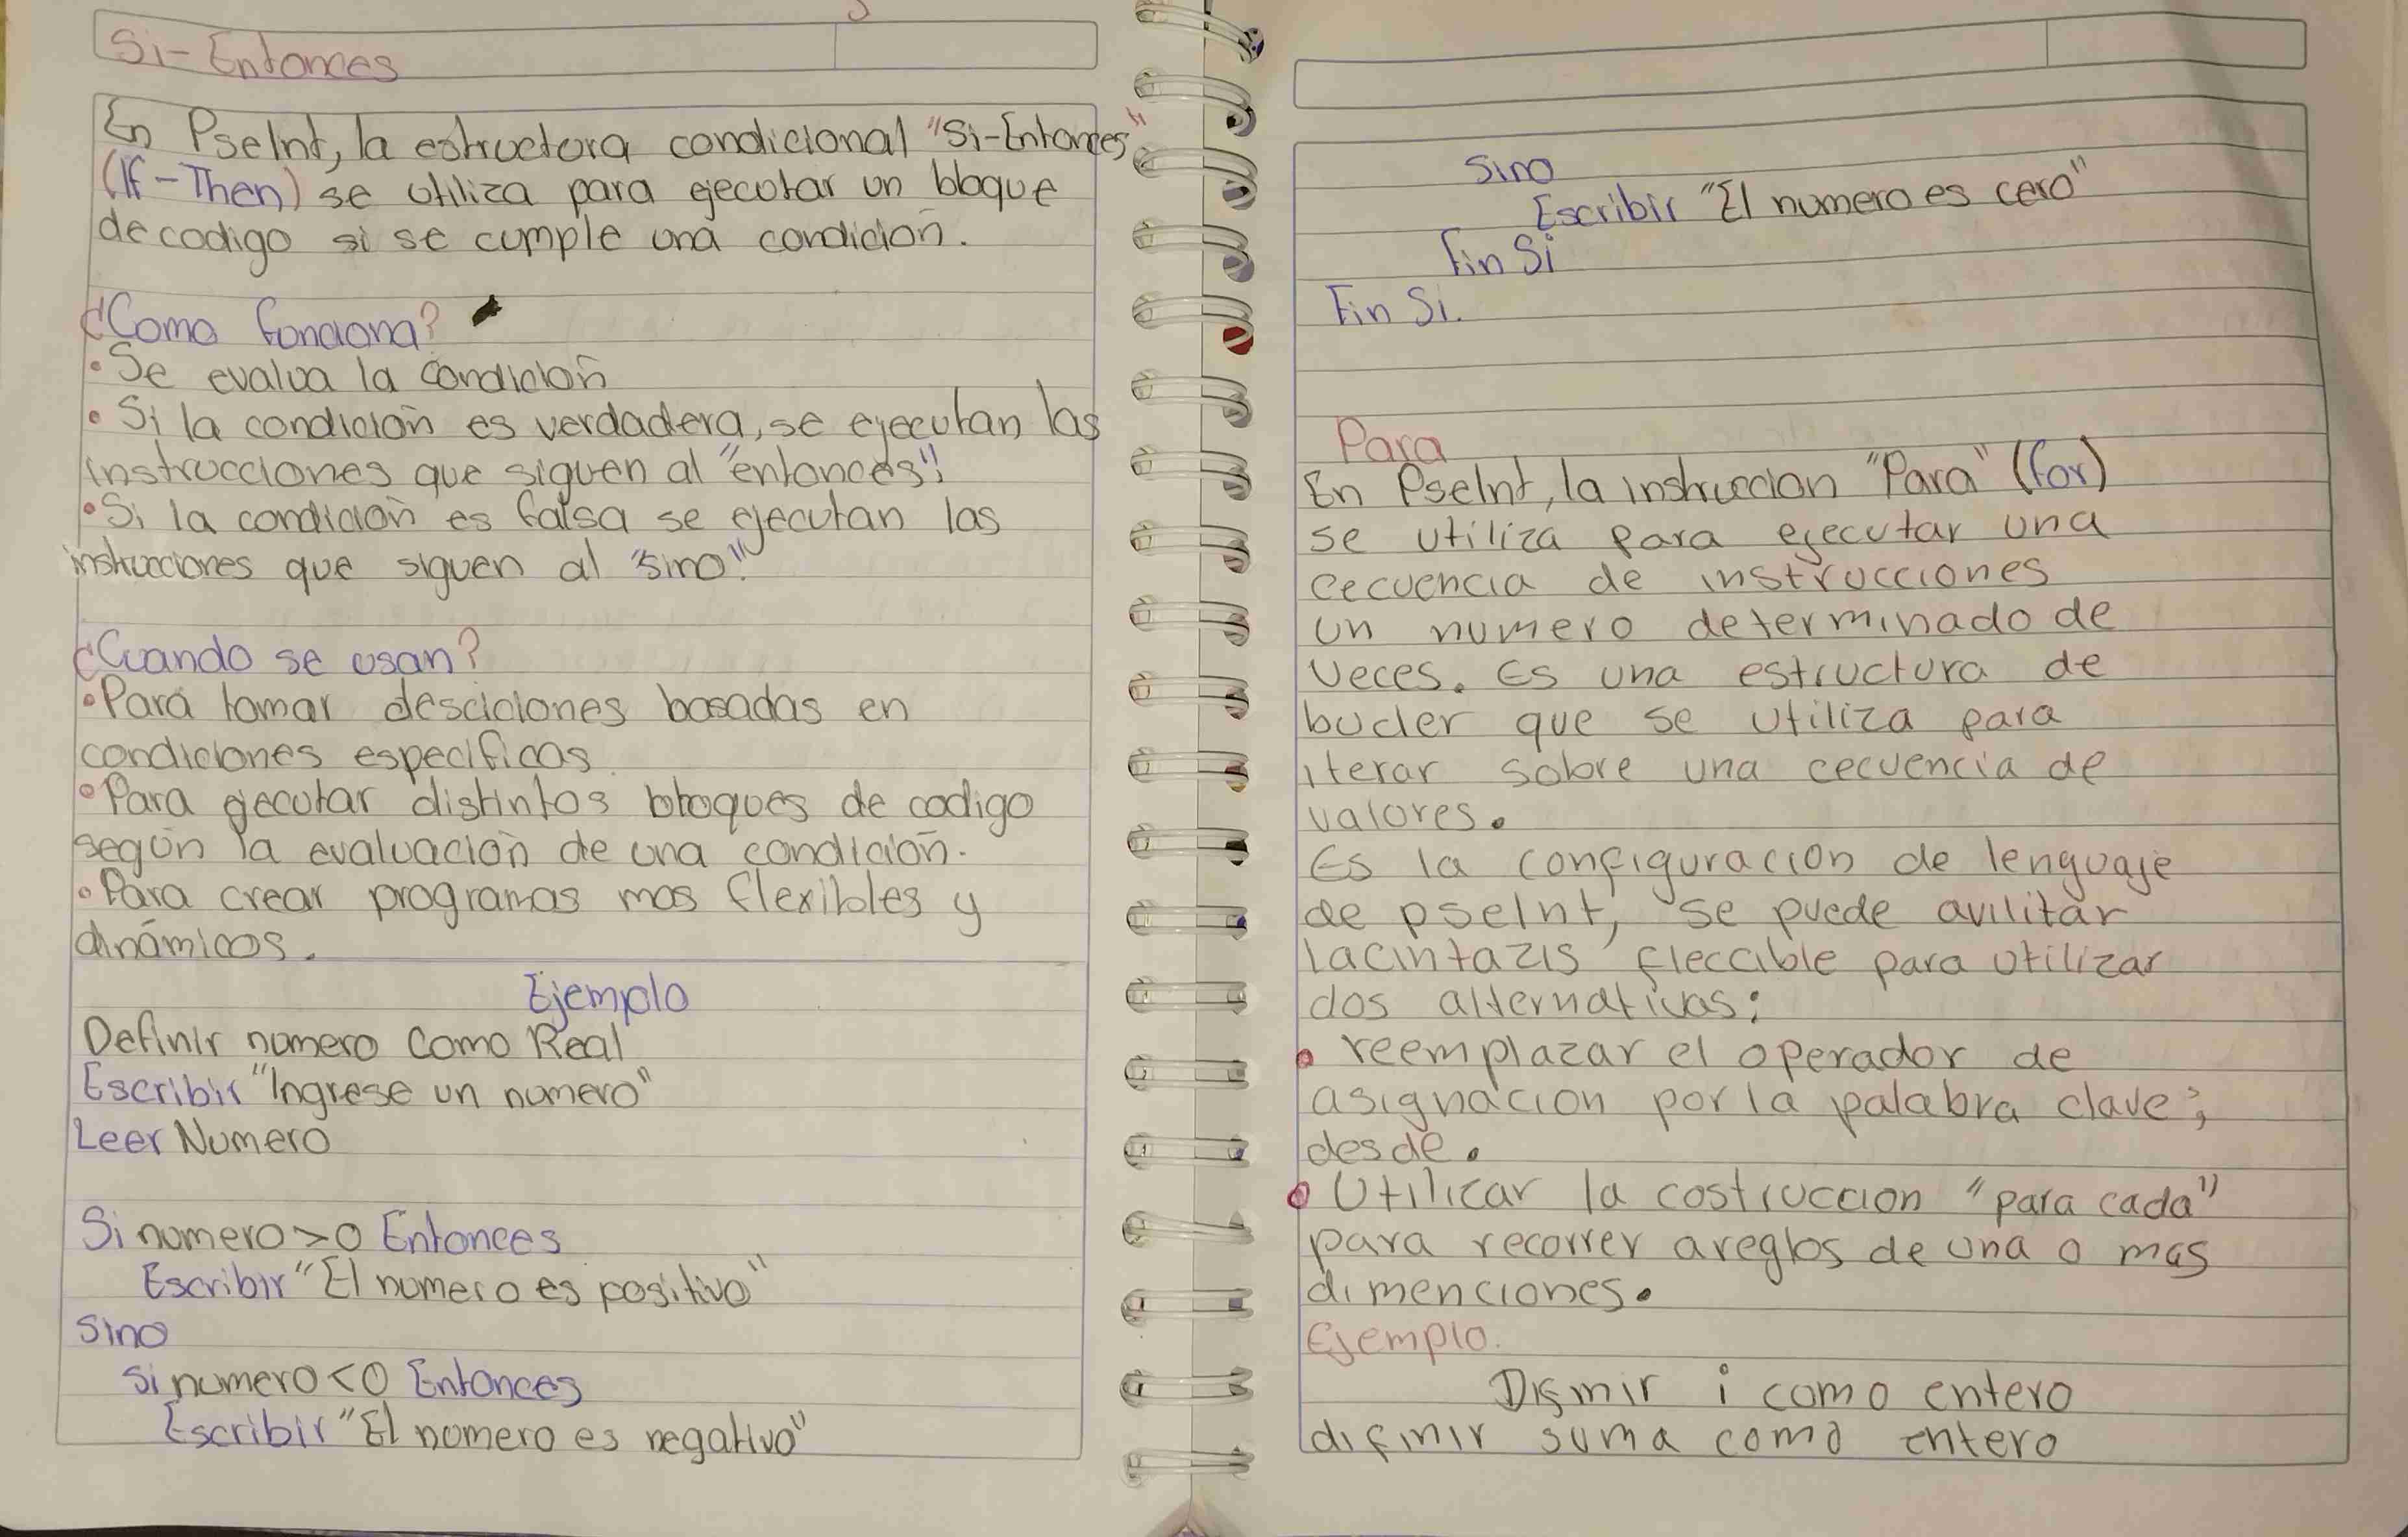 Si-Entonces
En PseInt, la estructura condicional "Si-Entonces"
(If-Then) se utiliza para ejecutar un bloque
de codigo si se cumple una condición.
¿Como funciona?
• Se evalua la condición
• Si la condición es verdadera, se ejecutan las
instrucciones que siguen al "entonces".
• Si la condición es falsa se ejecutan las
instrucciones que siguen al "sino".
¿Cuando se usan?
• Para tomar desciciones basadas en
condiciones especificas.
• Para ejecutar distintos bloques de codigo
según la evaluación de una condición.
• Para crear programas mas flexibles y
dinámicos.
Ejemplo
Definir numero Como Real
Escribir "Ingrese un numero"
Leer Numero
Si numero > 0 Entonces
Escribir "El numero es positivo"
Sino
si numero < 0 Entonces
Escribir "El numero es negativo"
Sino
Escribir "El numero es cero"
Fin Si
Fin Si.
Para
En PseInt, la instruccion "Para" (for)
se utiliza para ejecutar una
cecuencia de instrucciones
un numero determinado de
veces. Es una estructura de
bucler que se utiliza para
iterar sobre una cecuencia de
valores.
Es la configuracion de lenguaje
de pseInt, se puede avilitar
lacintazis fleccible para utilizar
dos alternativas:
• reemplazar el operador de
asignacion por la palabra clave;
desde.
• Utilizar la costruccion "para cada"
para recorrer areglos de una o mas
dimenciones.
Ejemplo.
Difinir i como entero
difinir suma como entero